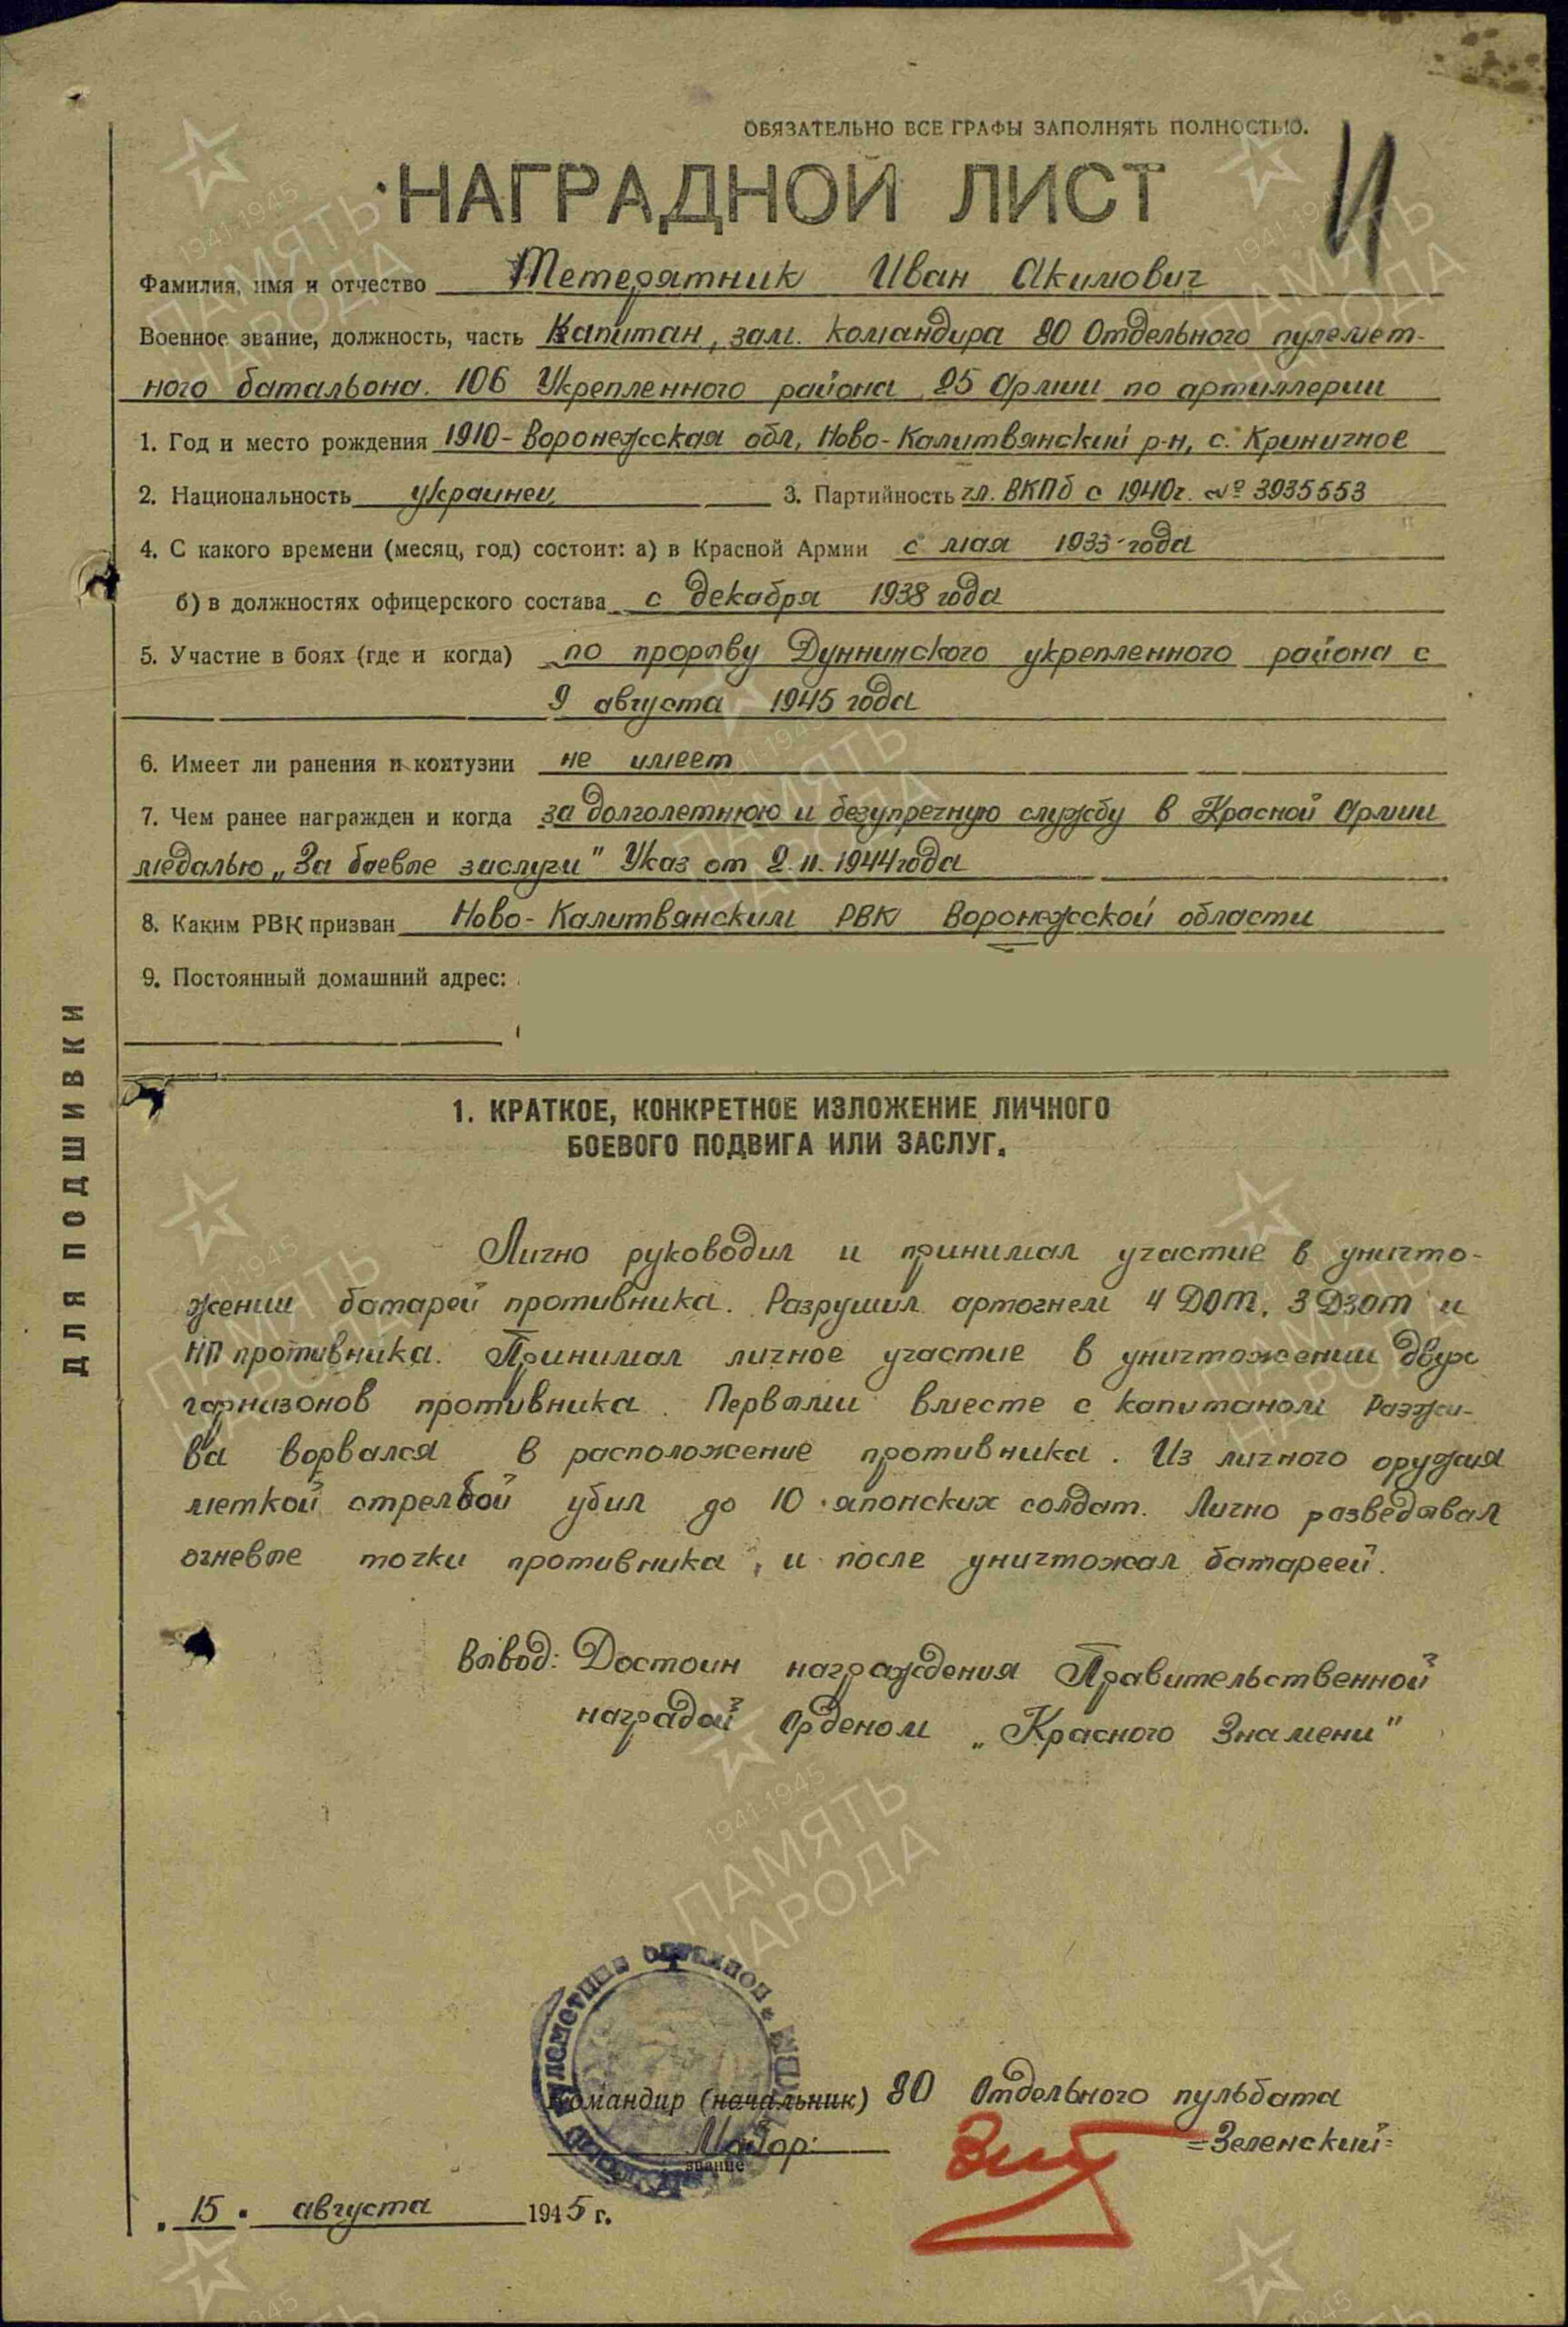 ОБЯЗАТЕЛЬНО ВСЕ ГРАФЫ ЗАПОЛНЯТЬ ПОЛНОСТЬЮ.
НАГРАДНОЙ ЛИСТ
Фамилия, имя и отчество Тетерятник Иван Акимович
Военное звание, должность, часть Капитан, зам. командира 80 Отдельного пулемет-
ного батальона. 106 Укрепленного района 25 Армии по артиллерии
1. Год и место рождения 1910 - Воронежская обл, Ново-Калитвянский р-н, с. Криничное
2. Национальность украинец 3. Партийность чл. ВКПб с 1940г. № 3935553
4. С какого времени (месяц, год) состоит: а) в Красной Армии с мая 1933 года
б) в должностях офицерского состава с декабря 1938 года
5. Участие в боях (где и когда) по прорыву Дуннинского укрепленного района с
9 августа 1945 года
6. Имеет ли ранения и контузии не имеет
7. Чем ранее награжден и когда за долголетнюю и безупречную службу в Красной Армии
медалью „За боевые заслуги" Указ от 2.11.1944 года
8. Каким РВК призван Ново-Калитвянским РВК Воронежской области
9. Постоянный домашний адрес:
ДЛЯ ПОДШИВКИ
1. КРАТКОЕ, КОНКРЕТНОЕ ИЗЛОЖЕНИЕ ЛИЧНОГО
БОЕВОГО ПОДВИГА ИЛИ ЗАСЛУГ.
Лично руководил и принимал участие в уничто-
жении батарей противника. Разрушил артогнем 4 ДОТ, 3 ДЗОТ и
НП противника. Принимал личное участие в уничтожении двух
гарнизонов противника. Первыми вместе с капитаном
ворвался в расположение противника. Из личного оружия
меткой стрелбой убил до 10 японских солдат. Лично разведывал
огневые точки противника, и после уничтожал батареей.
Вывод: Достоин награждения Правительственной
наградой Орденом „Красного Знамени"
Командир (начальник) 80 Отдельного пульбата
Майор: =Зеленский=
звание
15 августа 1945 г.
1941-1945
ПАМЯТЬ
НАРОДА